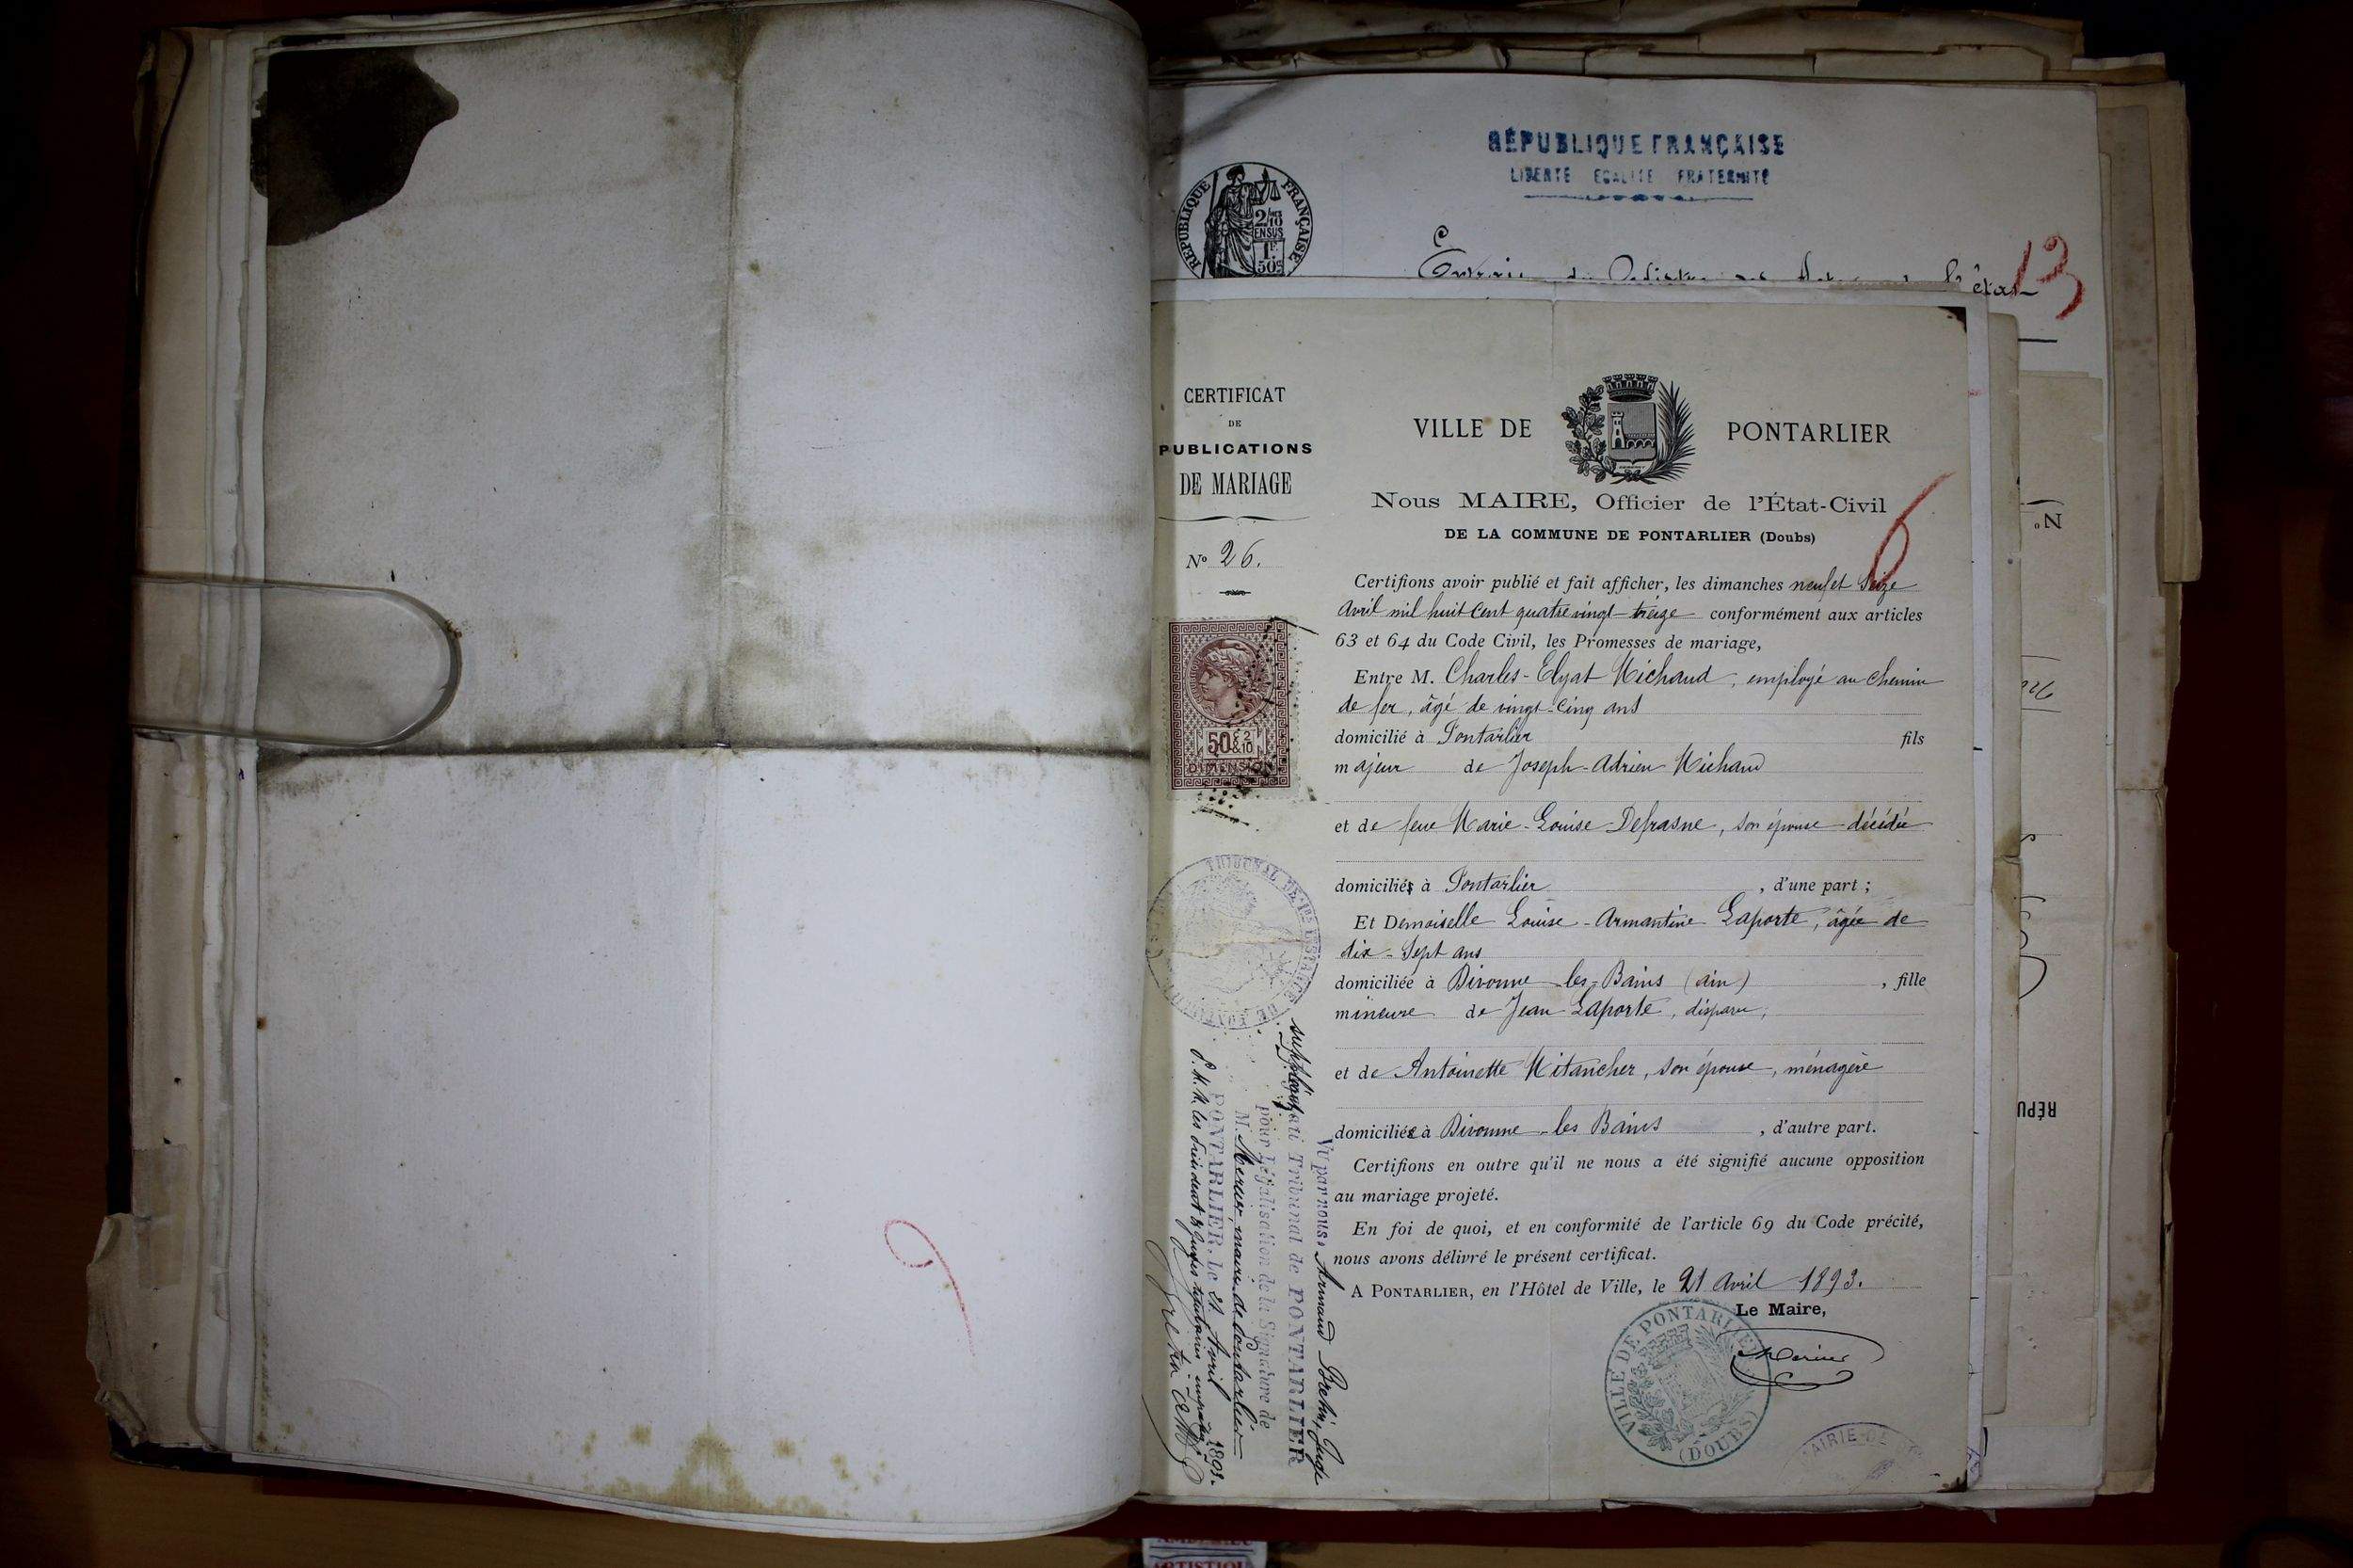 RÉPUBLIQUE FRANÇAISE
LIBERTÉ ÉGALITÉ FRATERNITÉ
RÉPUBLIQUE FRANÇAISE
2/10
EN SUS
1F.
50c
13
CERTIFICAT
DE
PUBLICATIONS
DE MARIAGE
No 26.
50c 2
&10
DIMENSION
VILLE DE PONTARLIER
Nous MAIRE, Officier de l'État-Civil
DE LA COMMUNE DE PONTARLIER (Doubs)
6
Certifions avoir publié et fait afficher, les dimanches neuf et Seize
Avril mil huit Cent quatre vingt treize conformément aux articles
63 et 64 du Code Civil, les Promesses de mariage,
Entre M. Charles-Elyat Michaud, employé au Chemin
de fer, âgé de vingt-Cinq ans
domicilié à Pontarlier fils
majeur de Joseph-Adrien Michaud
et de feue Marie-Louise Defrasne, son épouse décédée
domiciliés à Pontarlier, d'une part;
Et Demoiselle Louise-Armantine Laporte, âgée de
dix-Sept ans
domiciliée à Divonne-les-Bains (ain), fille
mineure de Jean Laporte, disparu,
et de Antoinette Mitancher, son épouse, ménagère
domiciliée à Divonne-les Bains, d'autre part.
Certifions en outre qu'il ne nous a été signifié aucune opposition
au mariage projeté.
En foi de quoi, et en conformité de l'article 69 du Code précité,
nous avons délivré le présent certificat.
A PONTARLIER, en l'Hôtel de Ville, le 21 Avril 1893.
Le Maire,
Mercier
VILLE DE PONTARLIER
(DOUBS)
MAIRIE DE
TRIBUNAL DE 1re INSTANCE
Vu par nous Armand Juge
suppléant au Tribunal de PONTARLIER
pour Légalisation de la Signature de
M. Mercier, maire de Pontarlier
PONTARLIER, Le 21 Avril 1893.
No
RÉPU